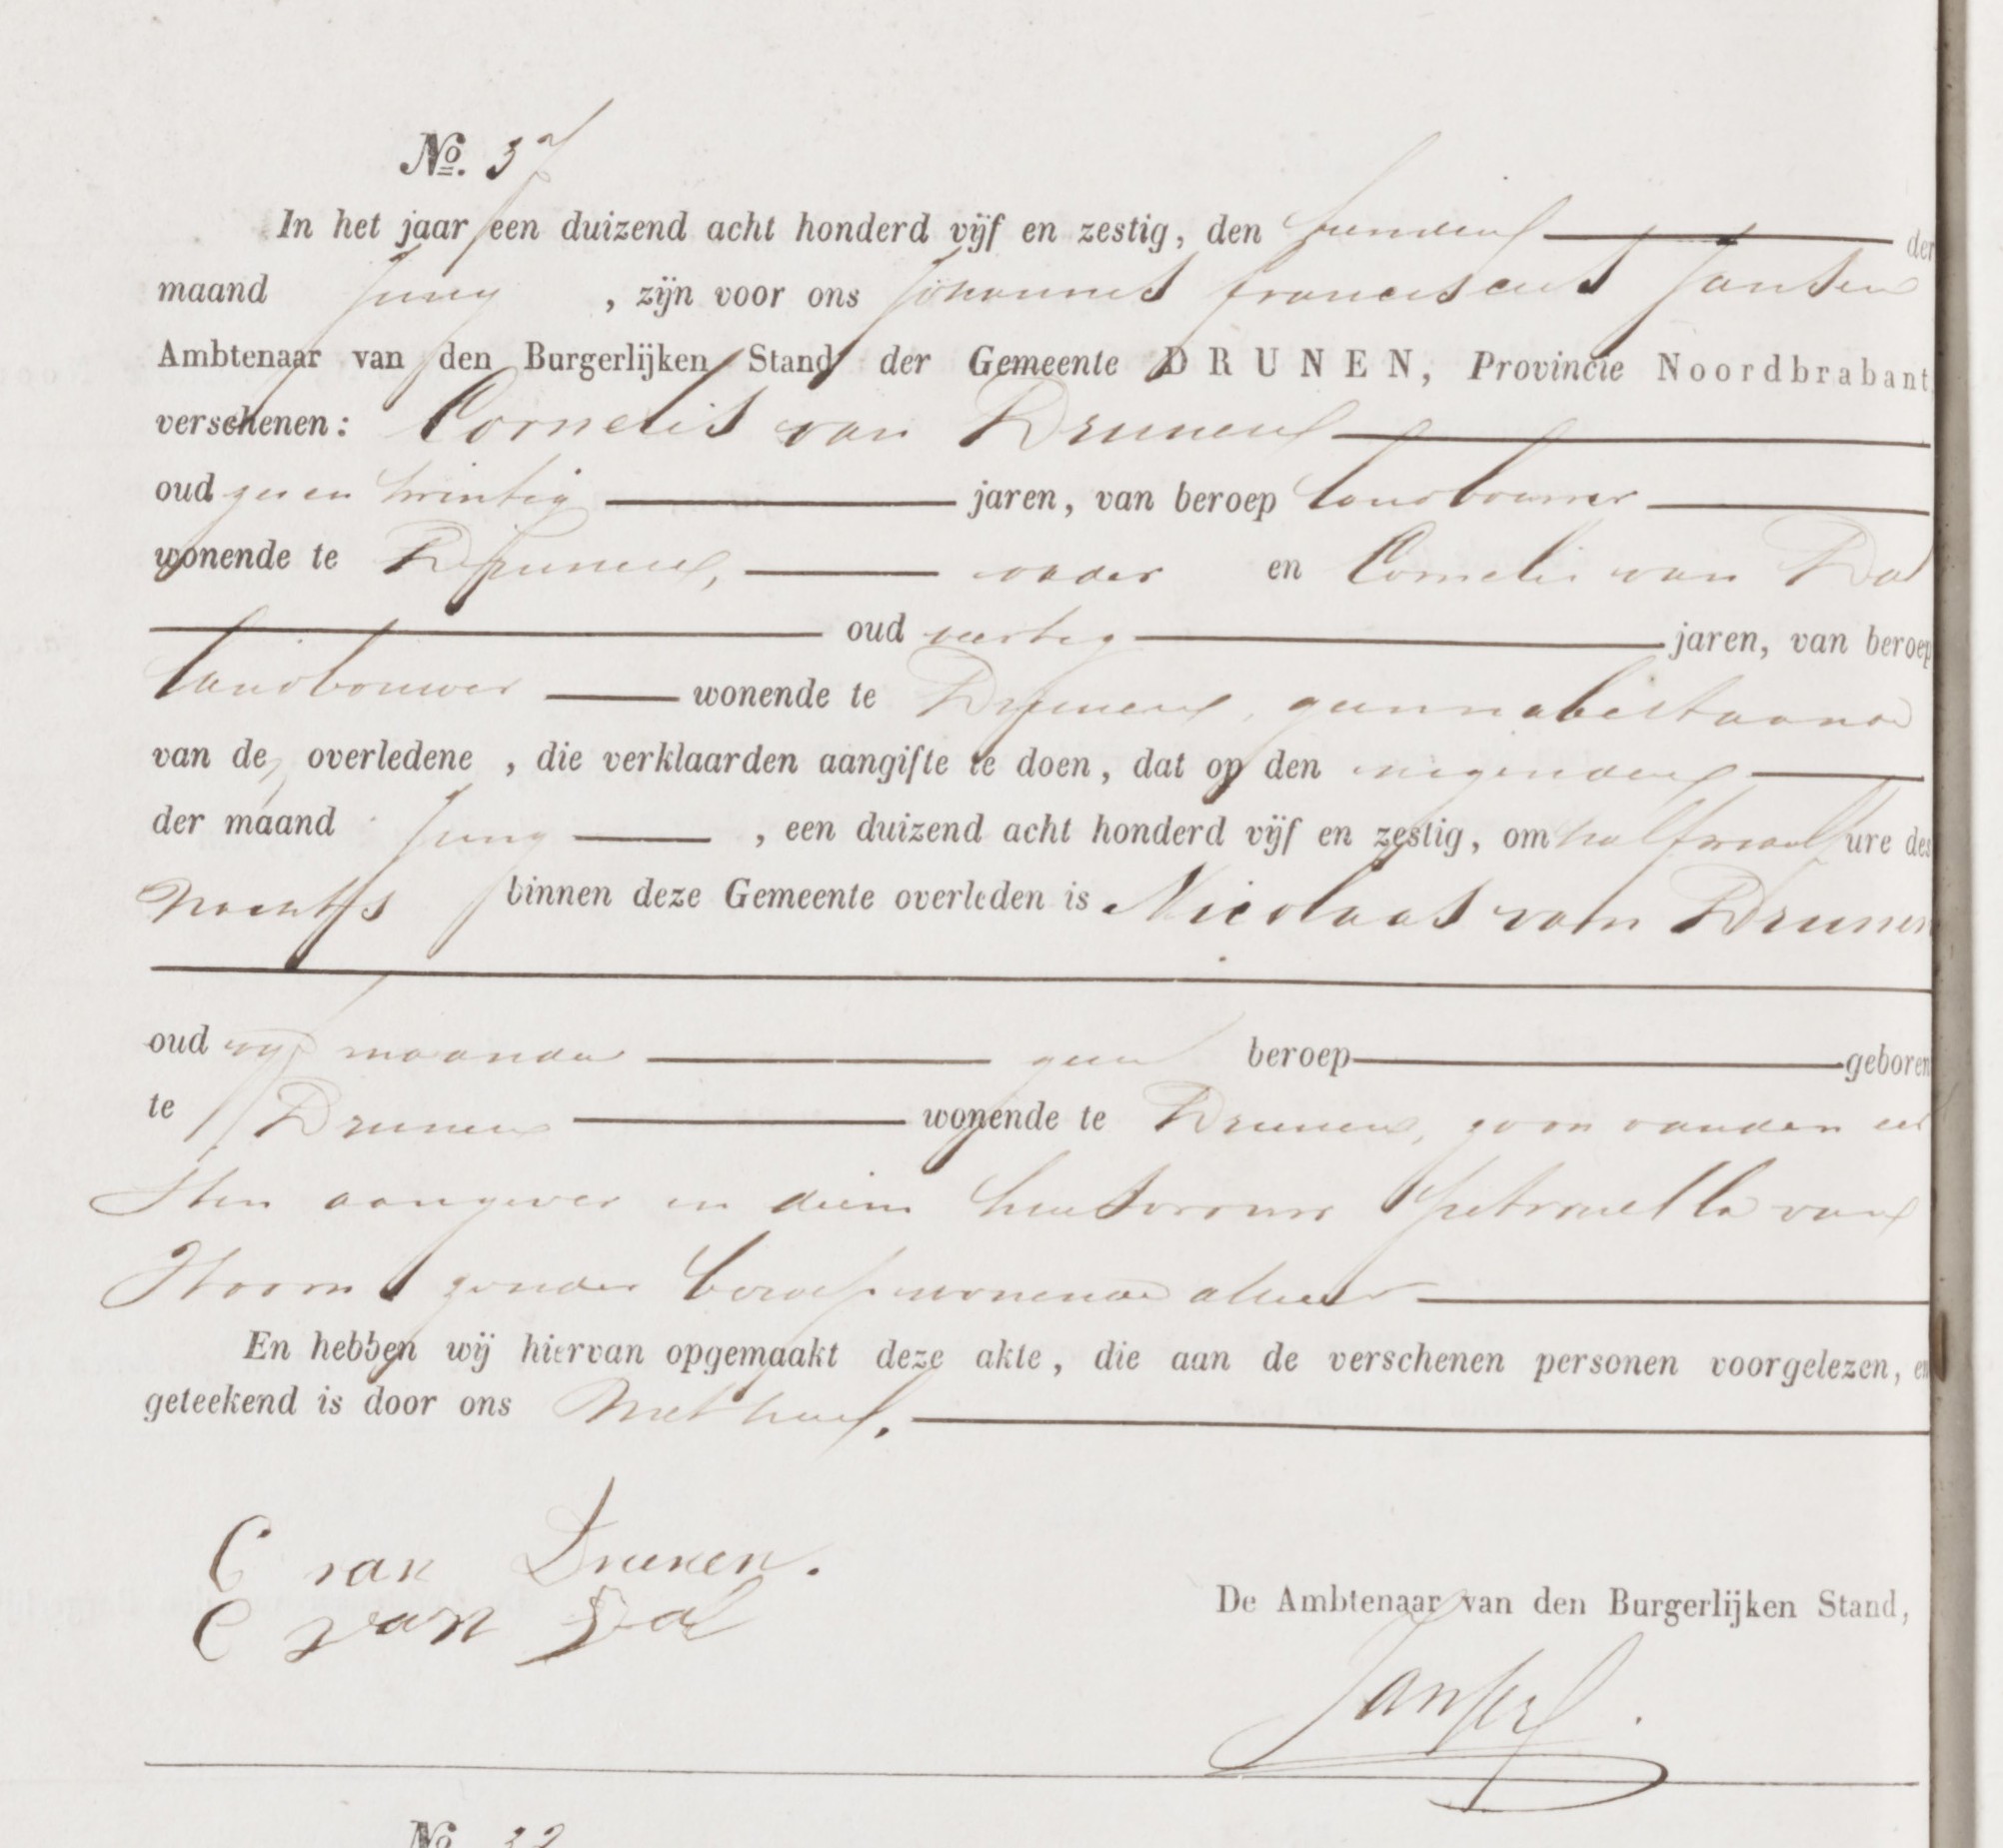 No. 37
In het jaar een duizend acht honderd vijf en zestig, den tienden der
maand Juny , zijn voor ons Johannes Franciscus Jansen
Ambtenaar van den Burgerlijken Stand der Gemeente DRUNEN, Provincie Noordbrabant,
verschenen: Cornelis van Drunen
oud zes en twintig jaren, van beroep landbouwer
wonende te Drunen, vader en Cornelis van Dal
oud veertig jaren, van beroep
landbouwer wonende te Drunen, geennabestaande
van de overledene , die verklaarden aangifte te doen, dat op den negenden
der maand Juny , een duizend acht honderd vijf en zestig, om half twaalf ure des
Nachts binnen deze Gemeente overleden is Nicolaas van Drunen
oud vyf maanden geen beroep geboren
te Drunen wonende te Drunen, zoon van den eer
sten aangever en diens huisvrouw Petronella van
Hoorn zonder beroep wonende alhier
En hebben wij hiervan opgemaakt deze akte, die aan de verschenen personen voorgelezen, en
geteekend is door ons Met hen.
C van Drunen.
C van Dal
De Ambtenaar van den Burgerlijken Stand,
Jansen.
No. 32